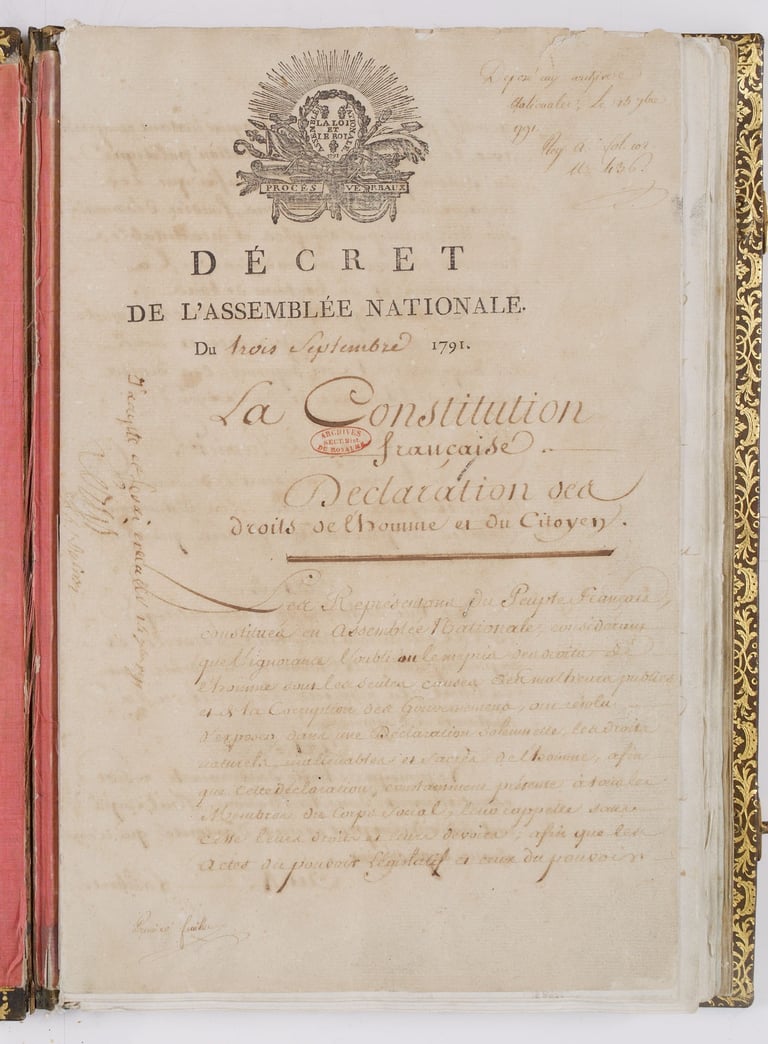 Déposé aux archives
Nationales, le 15 7bre
1791.
N° 436.
ASSEMBLÉE NATIONALE
LA LOI
ET
LE ROI
PROCÈS VERBAUX
DÉCRET
DE L'ASSEMBLÉE NATIONALE.
Du trois Septembre 1791.
La Constitution
française
ARCHIVES
SECT. HIST.
DU ROYAUME
Déclaration des
droits de l'homme et du Citoyen.
Les Représentans du Peuple Français,
constitués en Assemblée Nationale, considérant
que l'ignorance, l'oubli ou le mépris des droits de
l'homme sont les seules causes des malheurs publics
et de la Corruption des Gouvernemens, ont résolu
d'exposer dans une Déclaration solennelle, les droits
naturels, inaliénables et sacrés de l'homme, afin
que cette déclaration, constamment présente à tous les
Membres du Corps Social, leur rappelle sans
cesse leurs droits et leurs devoirs; afin que les
Actes du pouvoir Législatif et ceux du pouvoir
J'accepte et ferai exécuter 14 7bre 1791
Louis
Premier feuillet